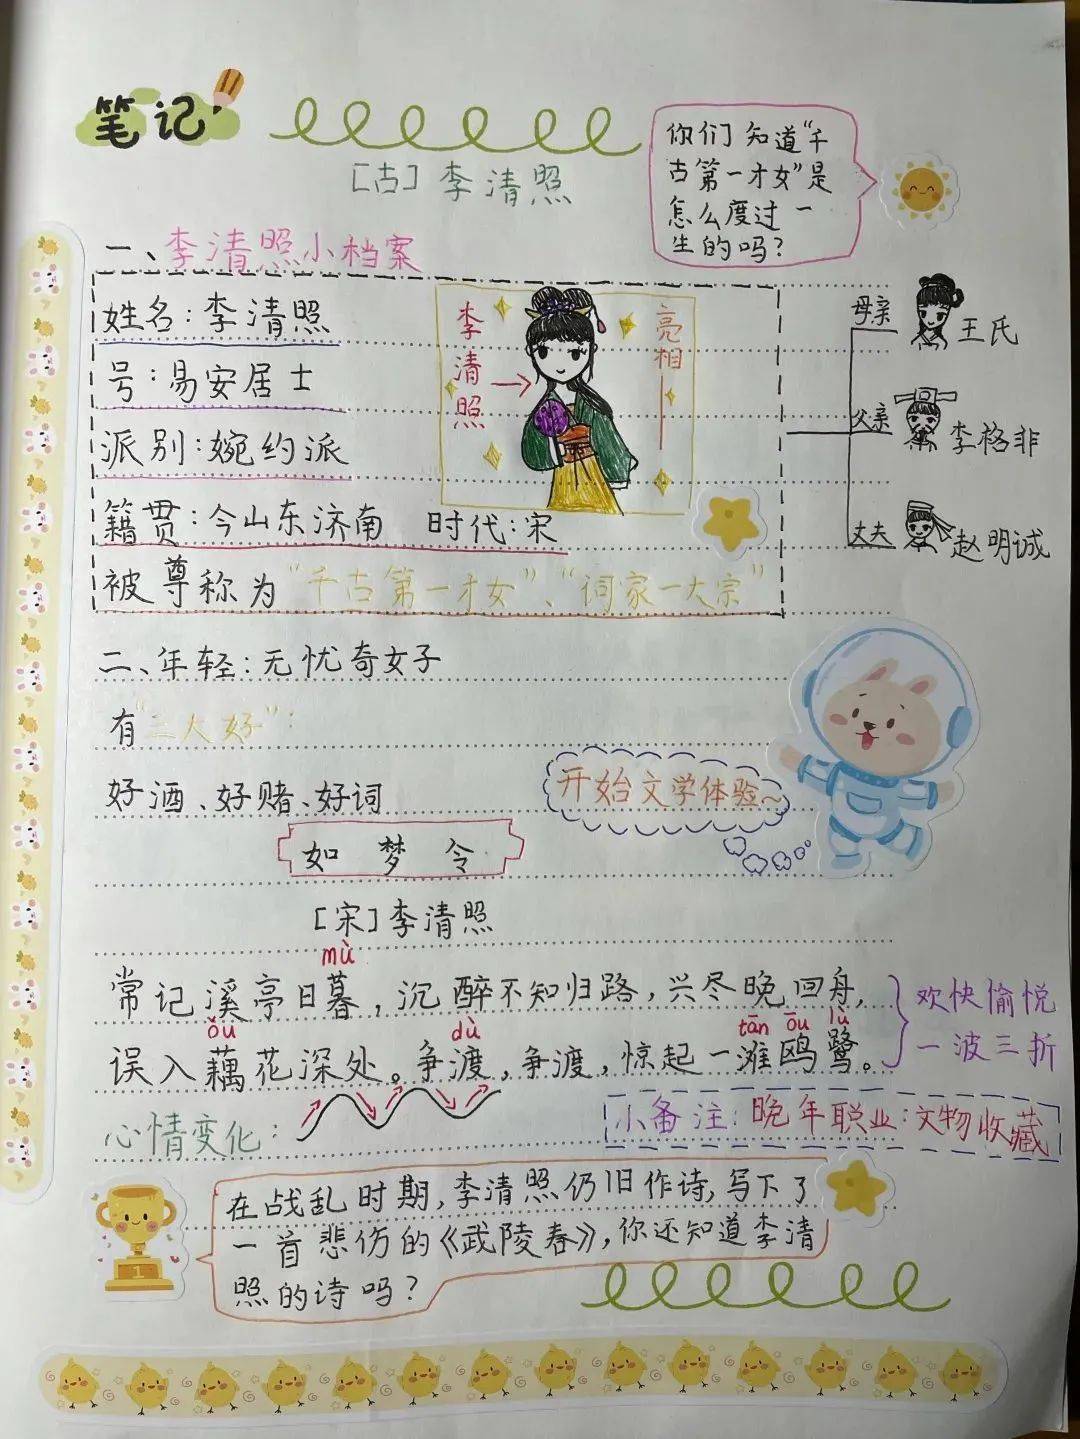 笔记
[古] 李清照
你们知道“千
古第一才女”是
怎么度过一
生的吗？
一、李清照小档案
姓名：李清照
号：易安居士
派别：婉约派
籍贯：今山东济南 时代：宋
被尊称为“千古第一才女”、“词家一大宗”
李清照
亮相
母亲 王氏
父亲 李格非
丈夫 赵明诚
二、年轻：无忧奇女子
有“三大好”：
好酒、好赌、好词
开始文学体验~
如梦令
[宋] 李清照
mù
常记溪亭日暮，沉醉不知归路，兴尽晚回舟，
ǒu dù tān ōu lù
误入藕花深处。争渡，争渡，惊起一滩鸥鹭。
欢快愉悦
一波三折
心情变化：
小备注：晚年职业：文物收藏
在战乱时期，李清照仍旧作诗，写下了
一首悲伤的《武陵春》，你还知道李清
照的诗吗？
1